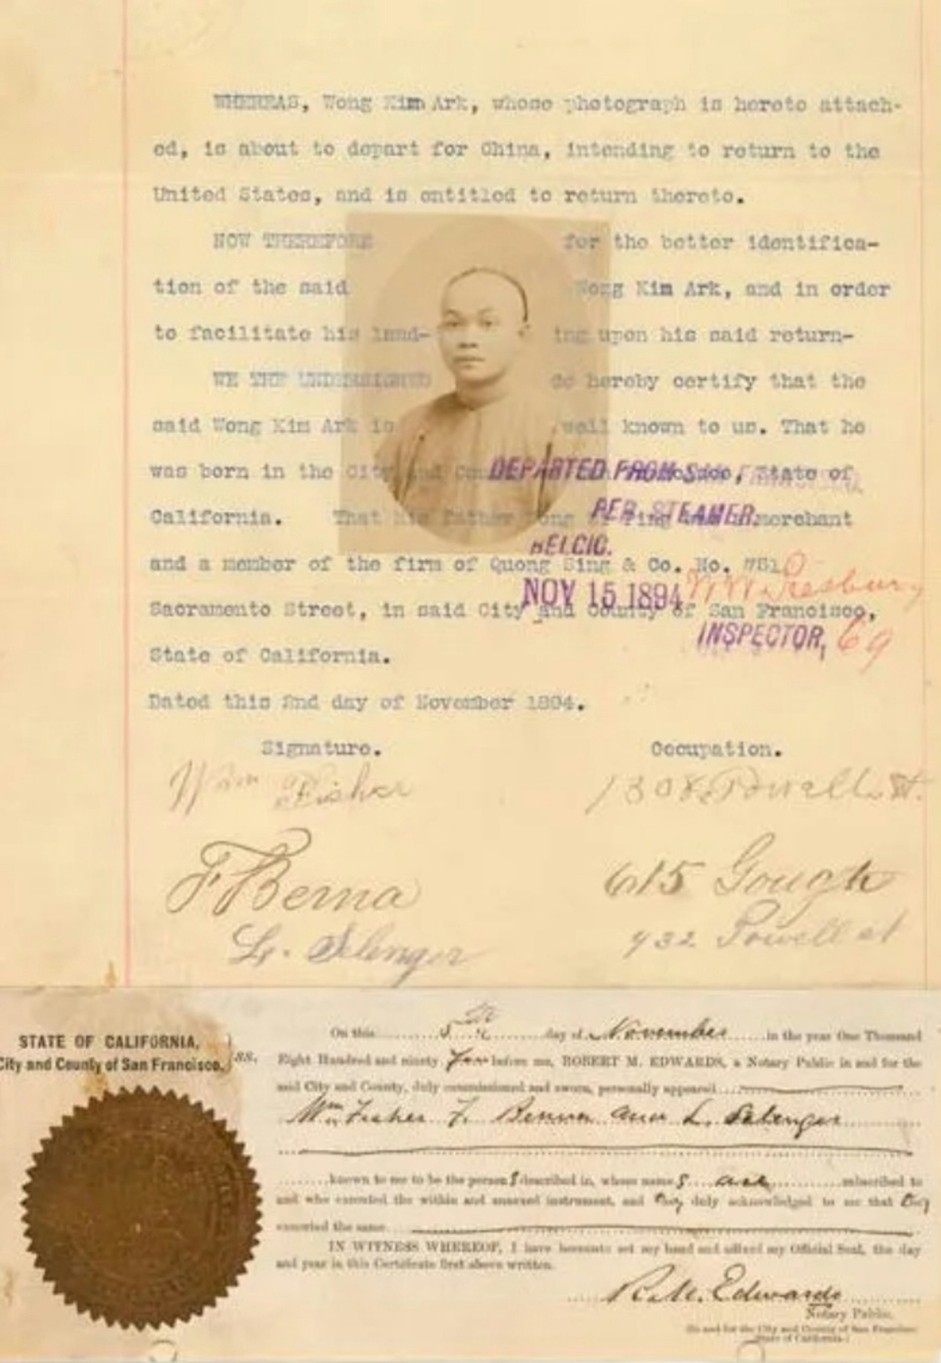 WHEREAS, Wong Kim Ark, whose photograph is hereto attach-
ed, is about to depart for China, intending to return to the
United States, and is entitled to return thereto.
NOW THEREFORE for the better identifica-
tion of the said Wong Kim Ark, and in order
to facilitate his land- ing upon his said return-
WE THE UNDERSIGNED do hereby certify that the
said Wong Kim Ark is well known to us. That he
was born in the City and State of
DEPARTED FROM SAN FRANCISCO,
California. That his father Wong merchant
PER. STEAMER,
BELGIC.
and a member of the firm of Quong Sing & Co. No. 751
NOV 15 1894
Sacramento Street, in said City and County of San Francisco,
INSPECTOR, 69
State of California.
Dated this 2nd day of November 1894.
Signature. Occupation.
Wm Fisher 1308 Powell St.
F Berna 615 Gough
L. Selenger 932 Powell st
STATE OF CALIFORNIA,
City and County of San Francisco. } ss.
On this 5th day of November in the year One Thousand
Eight Hundred and ninety four before me, ROBERT M. EDWARDS, a Notary Public in and for the
said City and County, duly commissioned and sworn, personally appeared
Wm Fisher F. Benna and L. Selenger
known to me to be the persons described in, whose names are subscribed to
and who executed the within and annexed instrument, and they duly acknowledged to me that they
executed the same.
IN WITNESS WHEREOF, I have hereunto set my hand and affixed my Official Seal, the day
and year in this Certificate first above written.
R. M. Edwards
Notary Public.
(In and for the City and County of San Francisco
State of California.)